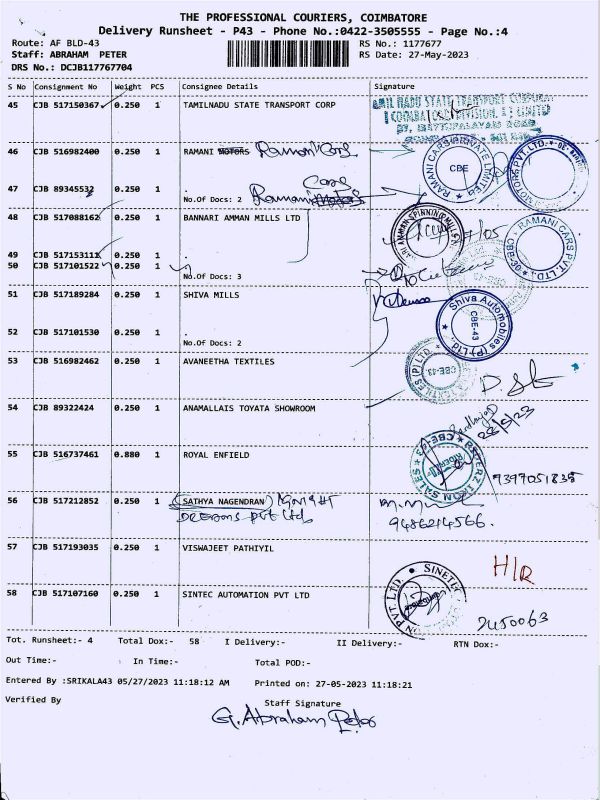 THE PROFESSIONAL COURIERS, COIMBATORE
Delivery Runsheet - P43 - Phone No.:0422-3505555 - Page No.:4
Route: AF BLD-43 RS No.: 1177677
Staff: ABRAHAM PETER RS Date: 27-May-2023
DRS No.: DCJB117767704
S No Consignment No Weight PCS Consignee Details Signature
45 CJB 517150367 0.250 1 TAMILNADU STATE TRANSPORT CORP
46 CJB 516982400 0.250 1 RAMANI MOTORS Ramani Cars
RAMANI CARS PRIVATE LIMITED CBE
MOTORS PVT. LTD.
Cars
47 CJB 89345532 0.250 1 .
No.Of Docs: 2 Ramani Motors
48 CJB 517088162 0.250 1 BANNARI AMMAN MILLS LTD
RAMANI CARS PVT. LTD. CBE-30
49 CJB 517153111 0.250 1 .
50 CJB 517101522 0.250 1 .
No.Of Docs: 3
51 CJB 517189284 0.250 1 SHIVA MILLS
Shiva Automobiles (P) Ltd. CBE-43
52 CJB 517101530 0.250 1 .
No.Of Docs: 2
53 CJB 516982462 0.250 1 AVANEETHA TEXTILES
TEXTILES (P) LTD. CBE-43
54 CJB 89322424 0.250 1 ANAMALLAIS TOYATA SHOWROOM
28/5/23
55 CJB 516737461 0.880 1 ROYAL ENFIELD
SALES CBE-43
7397051835
56 CJB 517212852 0.250 1 SATHYA NAGENDRAN
Pvt Ltd 9486214566.
57 CJB 517193035 0.250 1 VISWAJEET PATHIYIL H/R
58 CJB 517107160 0.250 1 SINTEC AUTOMATION PVT LTD
PVT. LTD.
Tot. Runsheet:- 4 Total Dox:- 58 I Delivery:- II Delivery:- RTN Dox:-
Out Time:- In Time:- Total POD:-
Entered By :SRIKALA43 05/27/2023 11:18:12 AM Printed on: 27-05-2023 11:18:21
Verified By Staff Signature
G. Abraham Peter